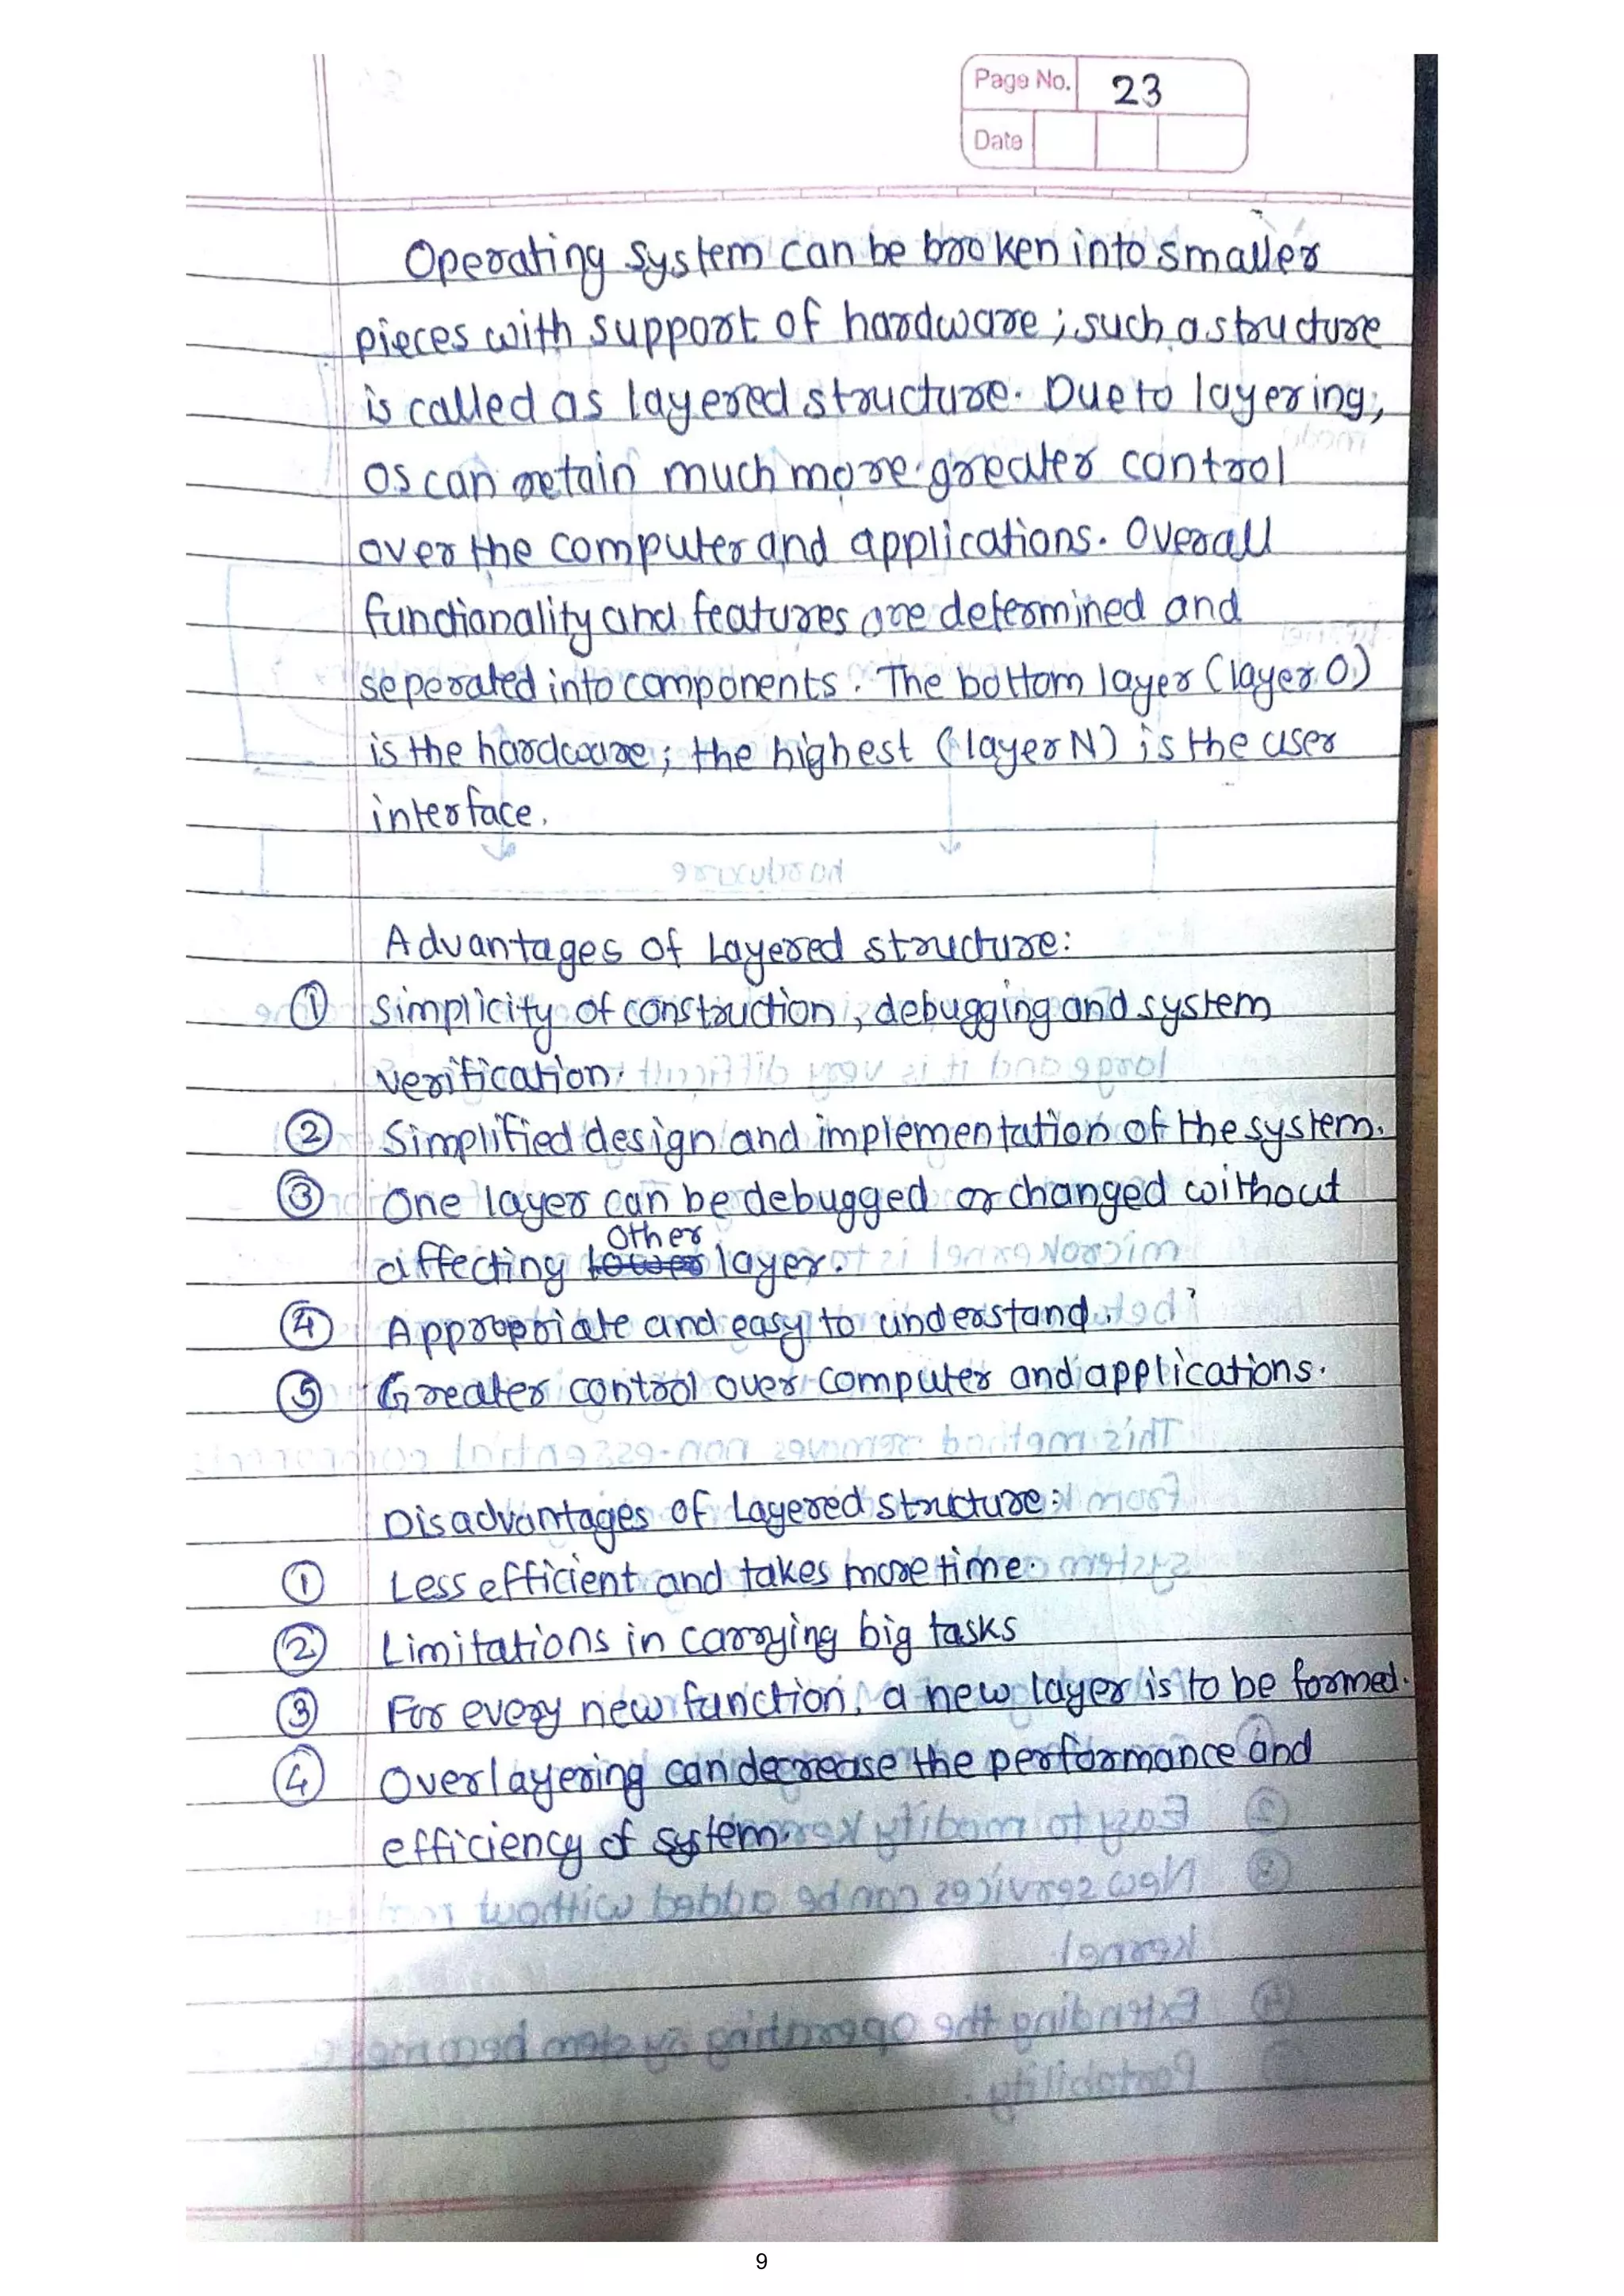 Page No. 23
Date
Operating System can be broken into smaller
pieces with support of hardware ; such a structure
is called as layered structure. Due to layering,
OS can retain much more greater control
over the computer and applications. Overall
functionality and features are determined and
seperated into components. The bottom layer (layer 0)
is the hardware ; the highest (layer N) is the user
interface.
Advantages of Layered structure:
① Simplicity of construction, debugging and system
verification.
② Simplified design and implementation of the system.
③ One layer can be debugged or changed without
other
affecting lower layer.
④ Appropriate and easy to understand.
⑤ Greater control over computer and applications.
Disadvantages of Layered structure:
① Less efficient and takes more time.
② Limitations in carrying big tasks
③ For every new function, a new layer is to be formed.
④ Overlayering can decrease the performance and
efficiency of system.
9